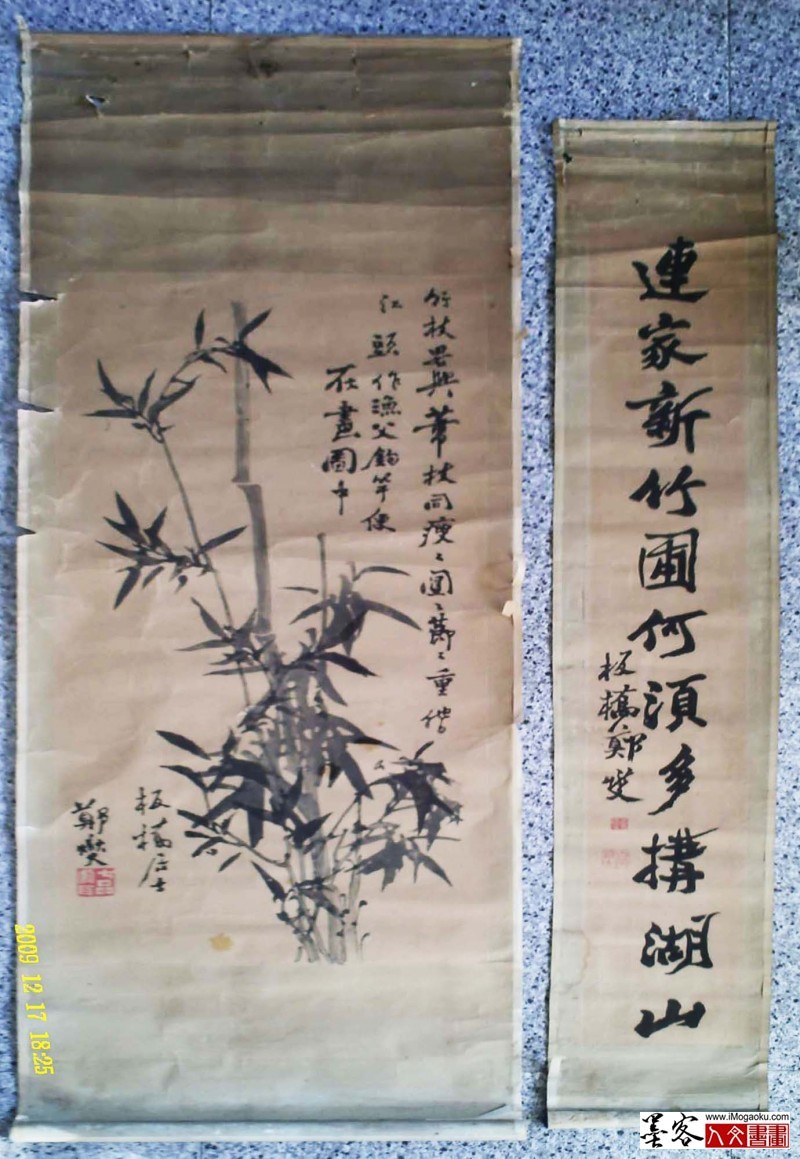 竹杖畧與杖同瘦〻圓〻節〻重借
江頭作漁父釣竿便
在畫圖中
板橋居士
鄭燮
連家新竹圃何須多搆湖山
板橋鄭燮
2009 12 17 18:25
墨客
www.iMogaoku.com
人文書畫